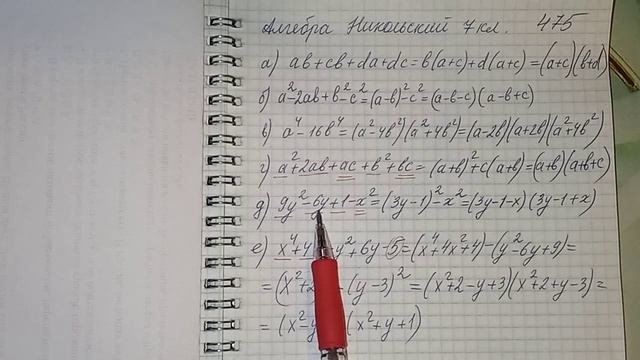 Алгебра Никольский 7 кл. 475
а) ab+cb+da+dc=b(a+c)+d(a+c)=(a+c)(b+d)
б) a²-2ab+b²-c²=(a-b)²-c²=(a-b-c)(a-b+c)
в) a⁴-16b⁴=(a²-4b²)(a²+4b²)=(a-2b)(a+2b)(a²+4b²)
г) a²+2ab+ac+b²+bc=(a+b)²+c(a+b)=(a+b)(a+b+c)
д) 9y²-6y+1-x²=(3y-1)²-x²=(3y-1-x)(3y-1+x)
е) x⁴+4 y²+6y-5=(x⁴+4x²+4)-(y²-6y+9)=
=(x²+2 -(y-3)²=(x²+2-y+3)(x²+2+y-3)=
=(x²-y (x²+y+1)